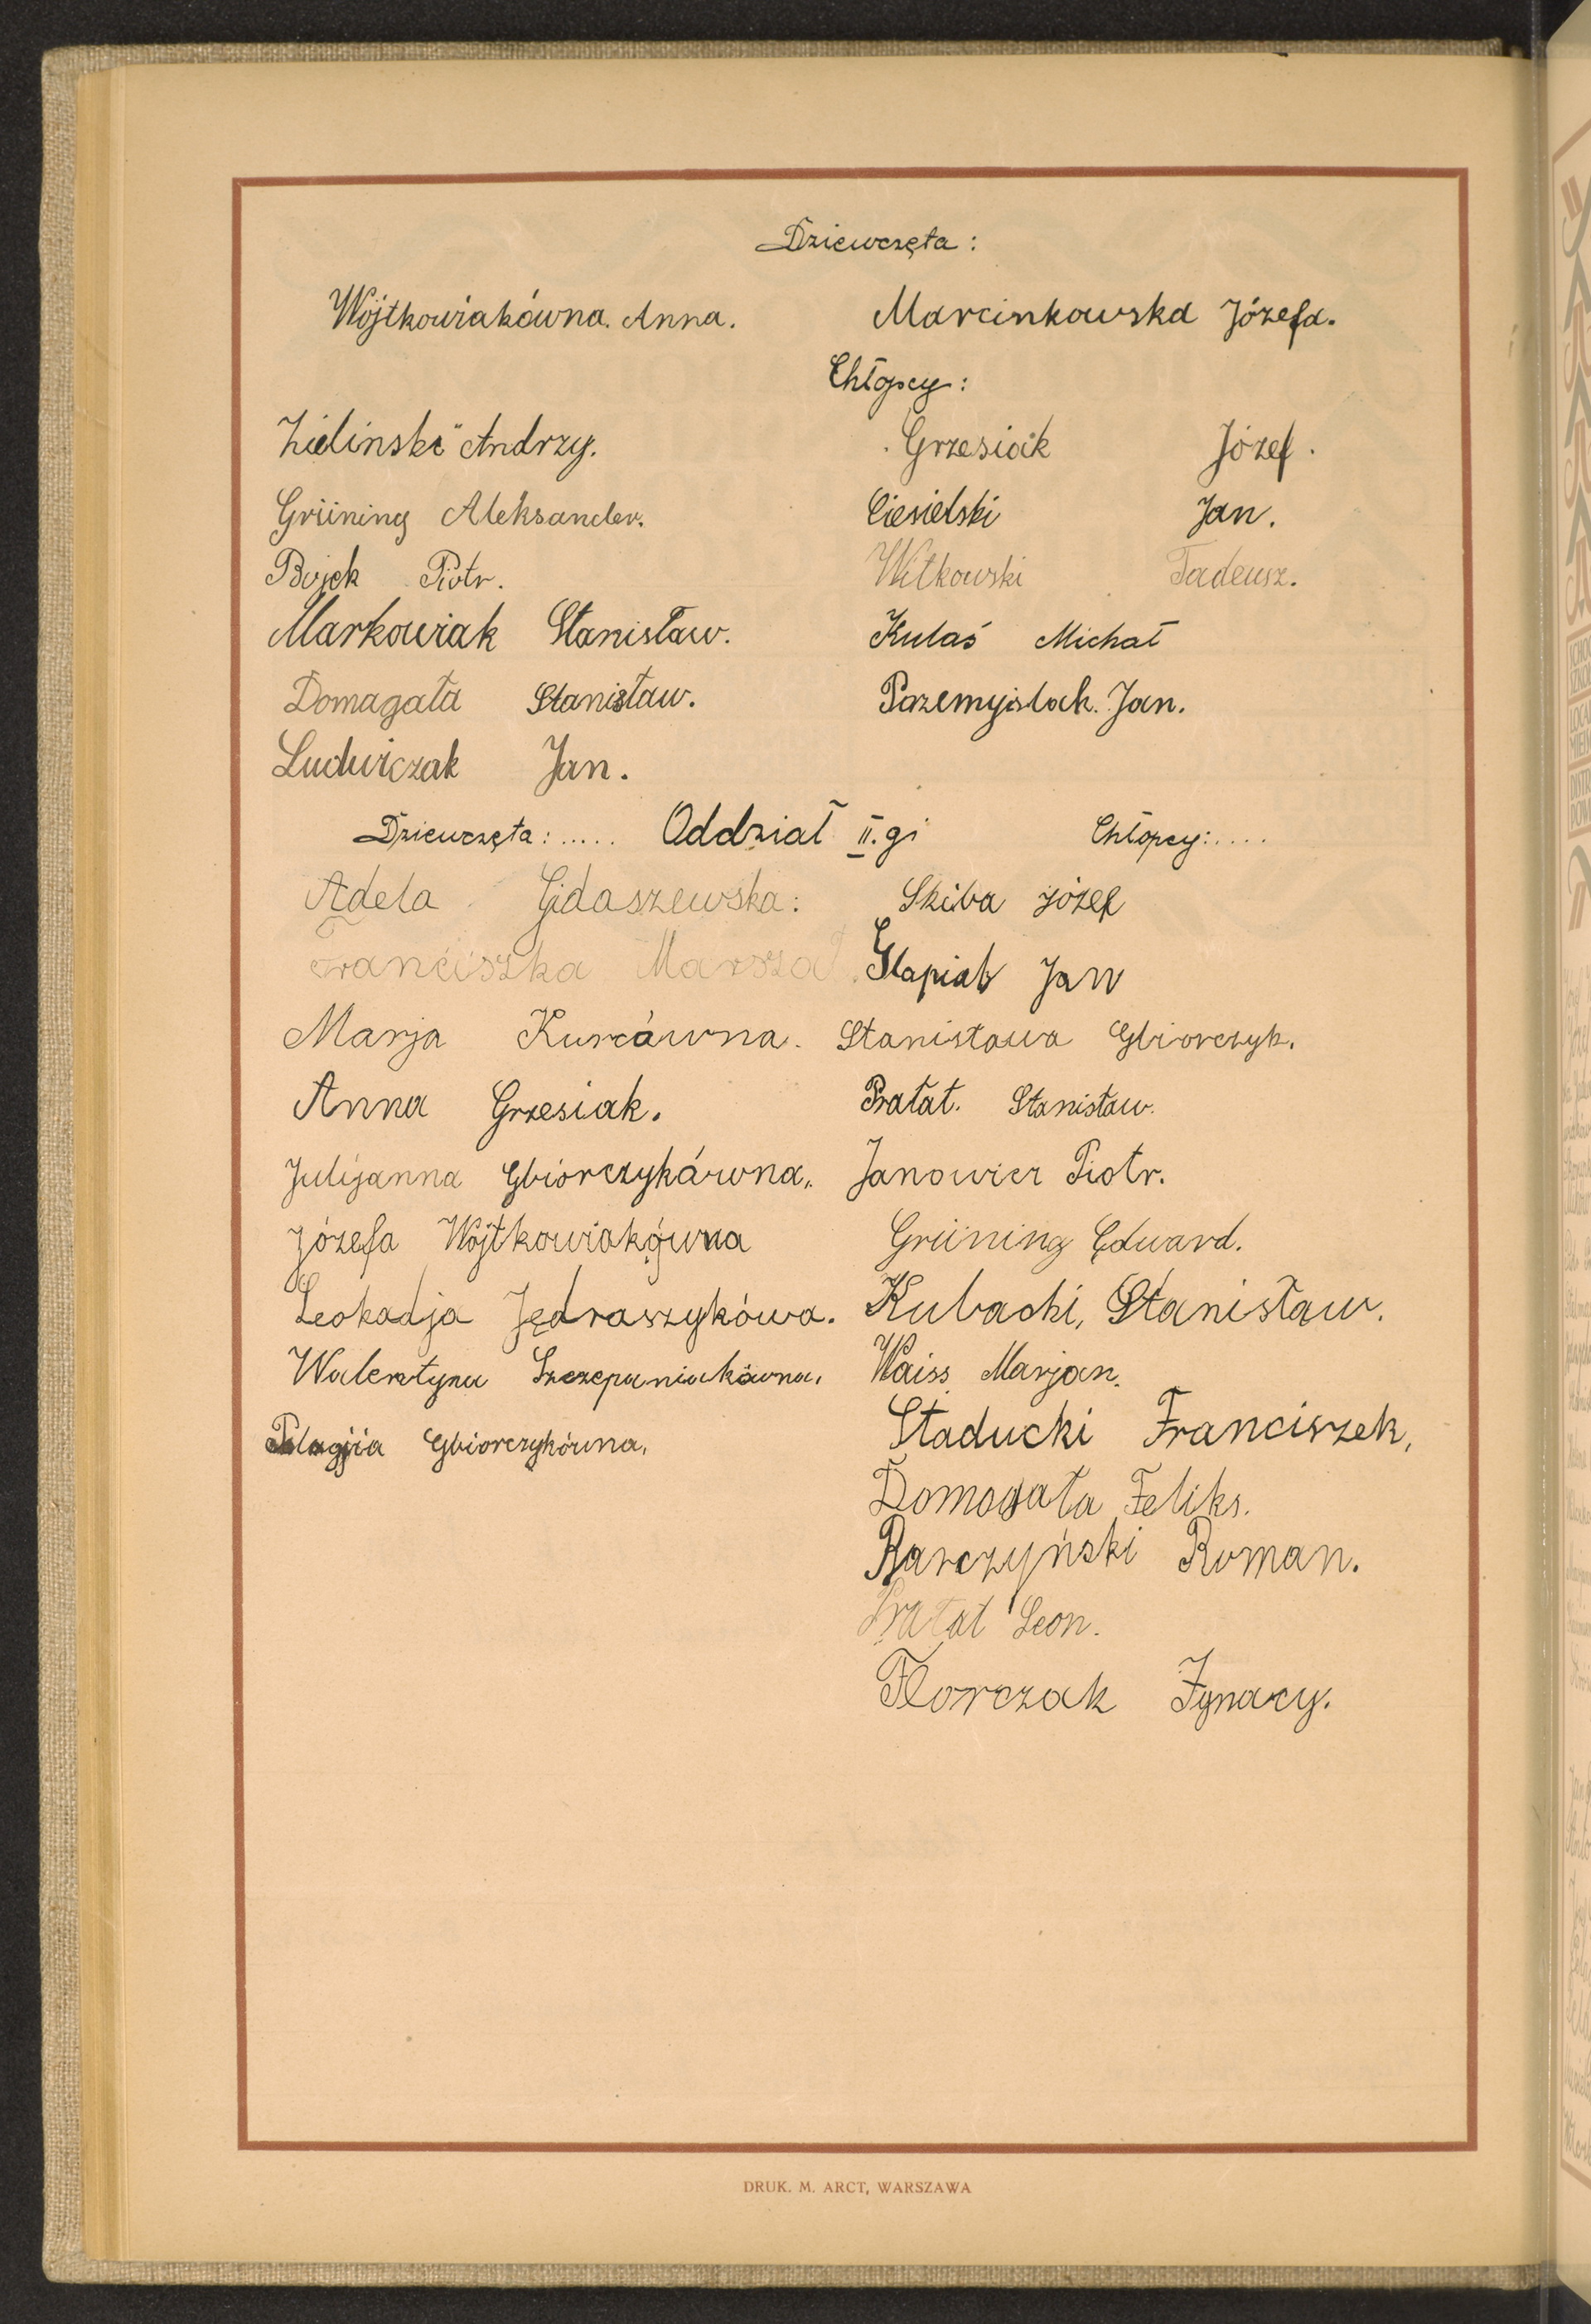 Dziewczęta:
Wójtkowiakówna. Anna. Marcinkowska Józefa.
Chłopcy:
Zieliński Andrzy. Grzesiak Józef.
Grüning Aleksander. Ciesielski Jan.
Bojek Piotr. Witkowski Tadeusz.
Markowiak Stanisław. Kulaś Michał
Domagała Stanisław. Pazemyślak. Jan.
Ludwiczak Jan.
Dziewczęta:..... Oddział II.gi Chłopcy:....
Adela Gidaszewska: Skiba Józef
Franciszka Marszał Słapiak Jan
Marja Kurcówna. Stanisława Gbiorczyk.
Anna Grzesiak. Prałat. Stanisław.
Julijanna Gbiorczykówna. Janowicz Piotr.
Józefa Wojtkowiakówna Grüning Edward.
Leokadja Jędraszykówa. Kubacki, Stanisław.
Walentyna Szczepaniakówna. Waiss Marjan.
Pelagjia Gbiorczykówna, Staducki Franciszek,
Domagała Feliks.
Barczyński Roman.
Prałat Leon.
Florczak Ignacy.
DRUK. M. ARCT, WARSZAWA